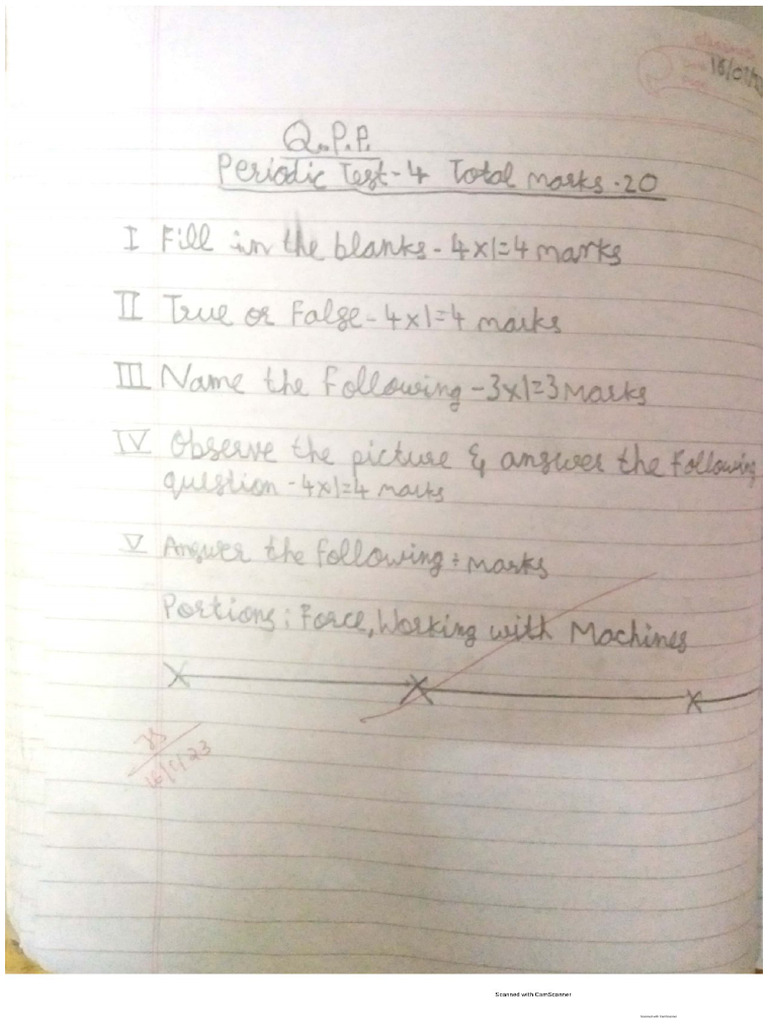 16/01/
Q.P.P.
Periodic Test-4 Total marks.20
I Fill in the blanks - 4x1=4 marks
II True or False - 4x1=4 marks
III Name the following - 3x1=3 Marks
IV Observe the picture & answer the following
question - 4x1=4 marks
V Answer the following : marks
Portions : Force, Working with Machines
16/1/23
Scanned with CamScanner
Scanned with CamScanner